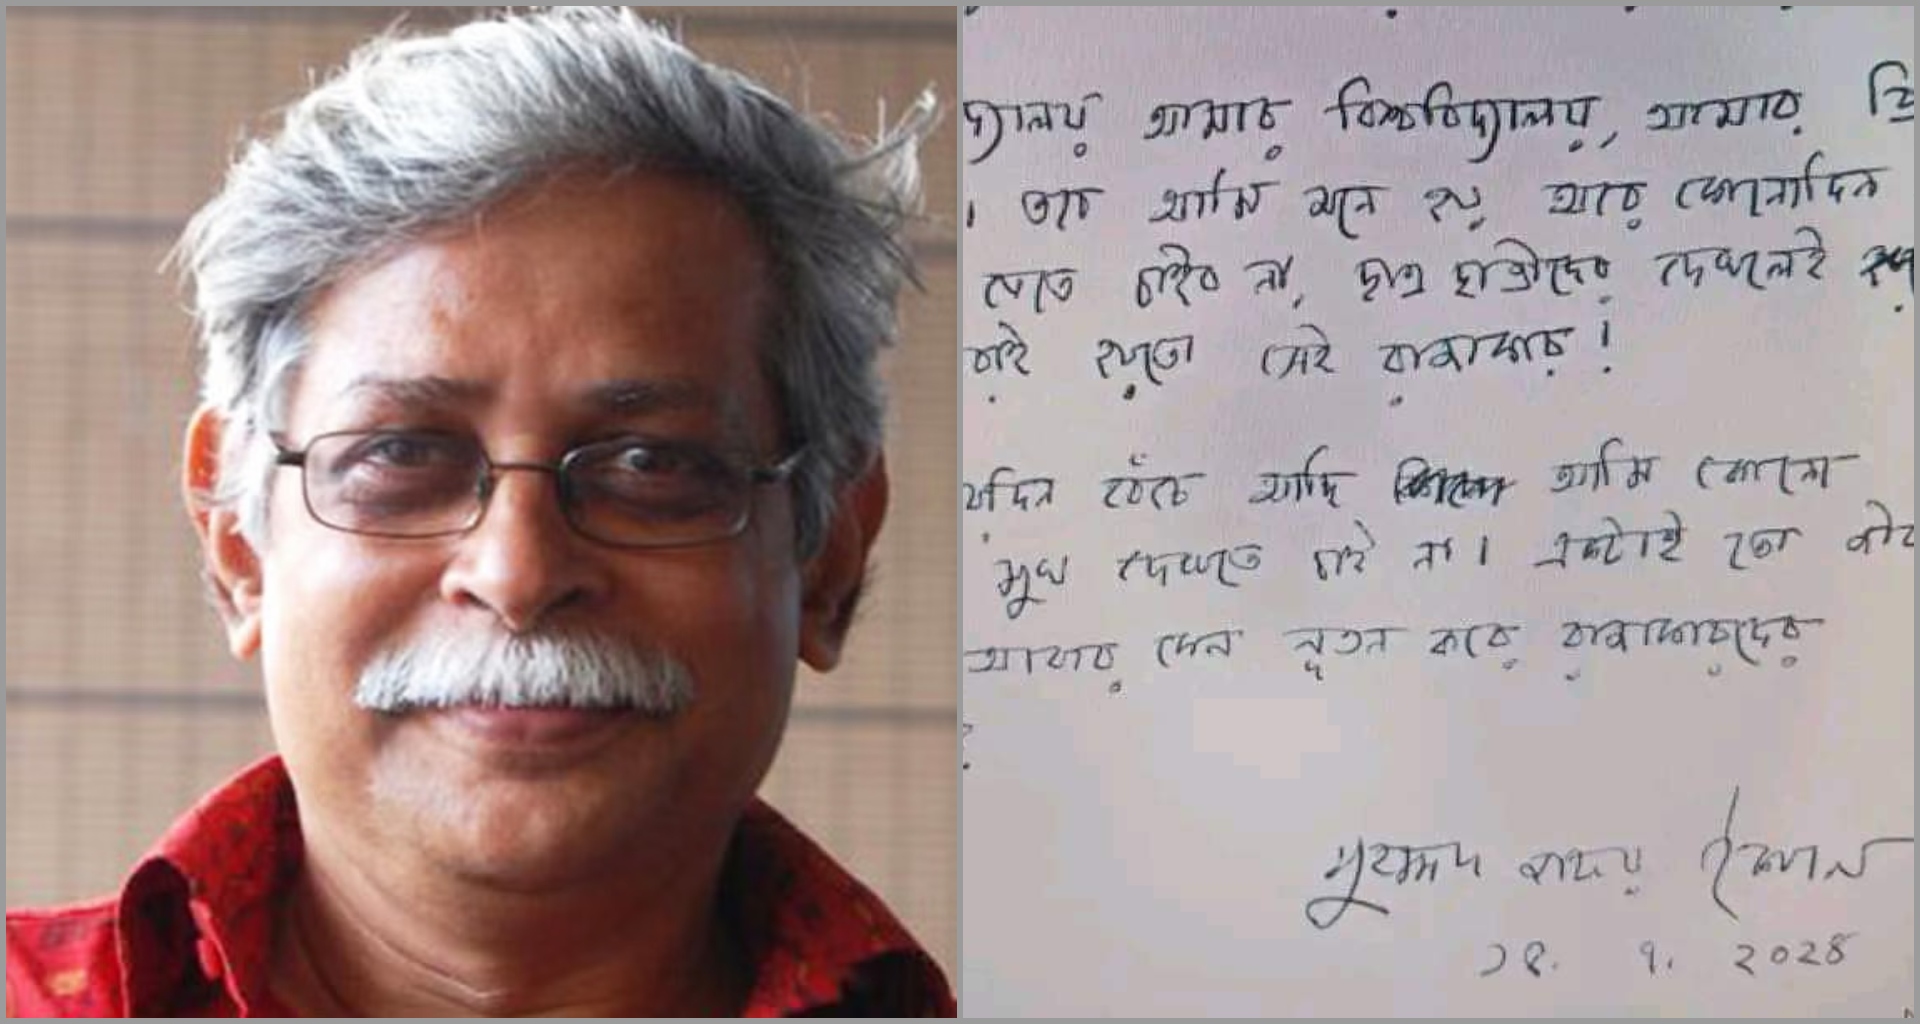 দ্যালয় আমার বিশ্ববিদ্যালয়, আমার প্রি
। তবে আমি মনে হয় আর কোনোদিন
যেতে চাইব না, ছাত্র ছাত্রীদের দেখলেই
হয়তো সেই রাজাকার!
য়দিন বেঁচে আছি আমি কোনো
মুখ দেখতে চাই না। একটাই তো জীব
আবার কেন নূতন করে রাজাকারদের
মুহম্মদ জাফর ইকবাল
১৪. ৭. ২০২৪